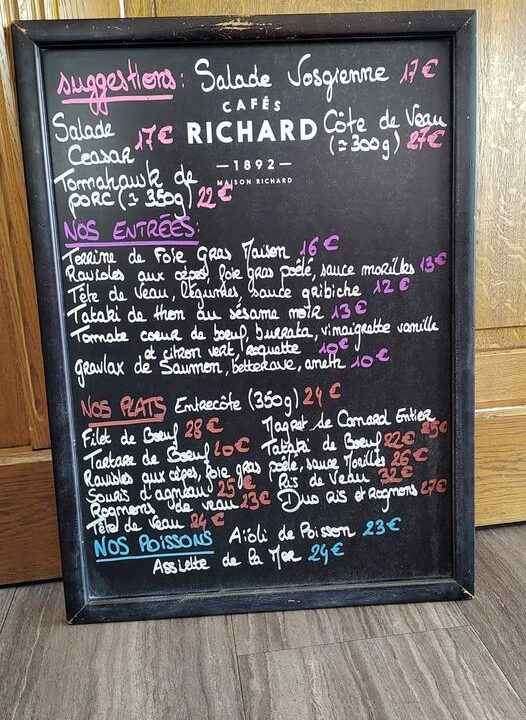 suggestions: Salade Vosgienne 17€
CAFÉS
RICHARD
—1892—
MAISON RICHARD
Salade
Ceasar 17€
Côte de Veau
(≃300g) 27€
Tomahawk de
porc (≃ 350g) 22€
NOS ENTRÉES:
Terrine de Foie Gras Maison 16€
Ravioles aux cèpes, foie gras poêlé, sauce morilles 13€
Tête de Veau, légumes, sauce gribiche 12€
Tataki de thon au sésame noir 13€
Tomate coeur de boeuf, burrata, vinaigrette vanille
et citron vert, roquette 10€
gravlax de Saumon, betterave, aneth 10€
NOS PLATS Entrecôte (350g) 24€
Filet de Boeuf 28€ Magret de Canard Entier 25€
Tartare de Boeuf 20€ Tataki de Boeuf 22€
Ravioles aux cèpes, foie gras poêlé, sauce Morilles 26€
Souris d'agneau 25€ Ris de Veau 32€
Rognons de veau 23€ Duo Ris et Rognons 27€
Tête de Veau 24€
NOS POISSONS Aïoli de Poisson 23€
Assiette de la Mer 24€